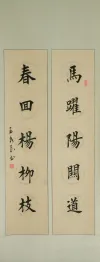 馬躍陽關道
春回楊柳枝